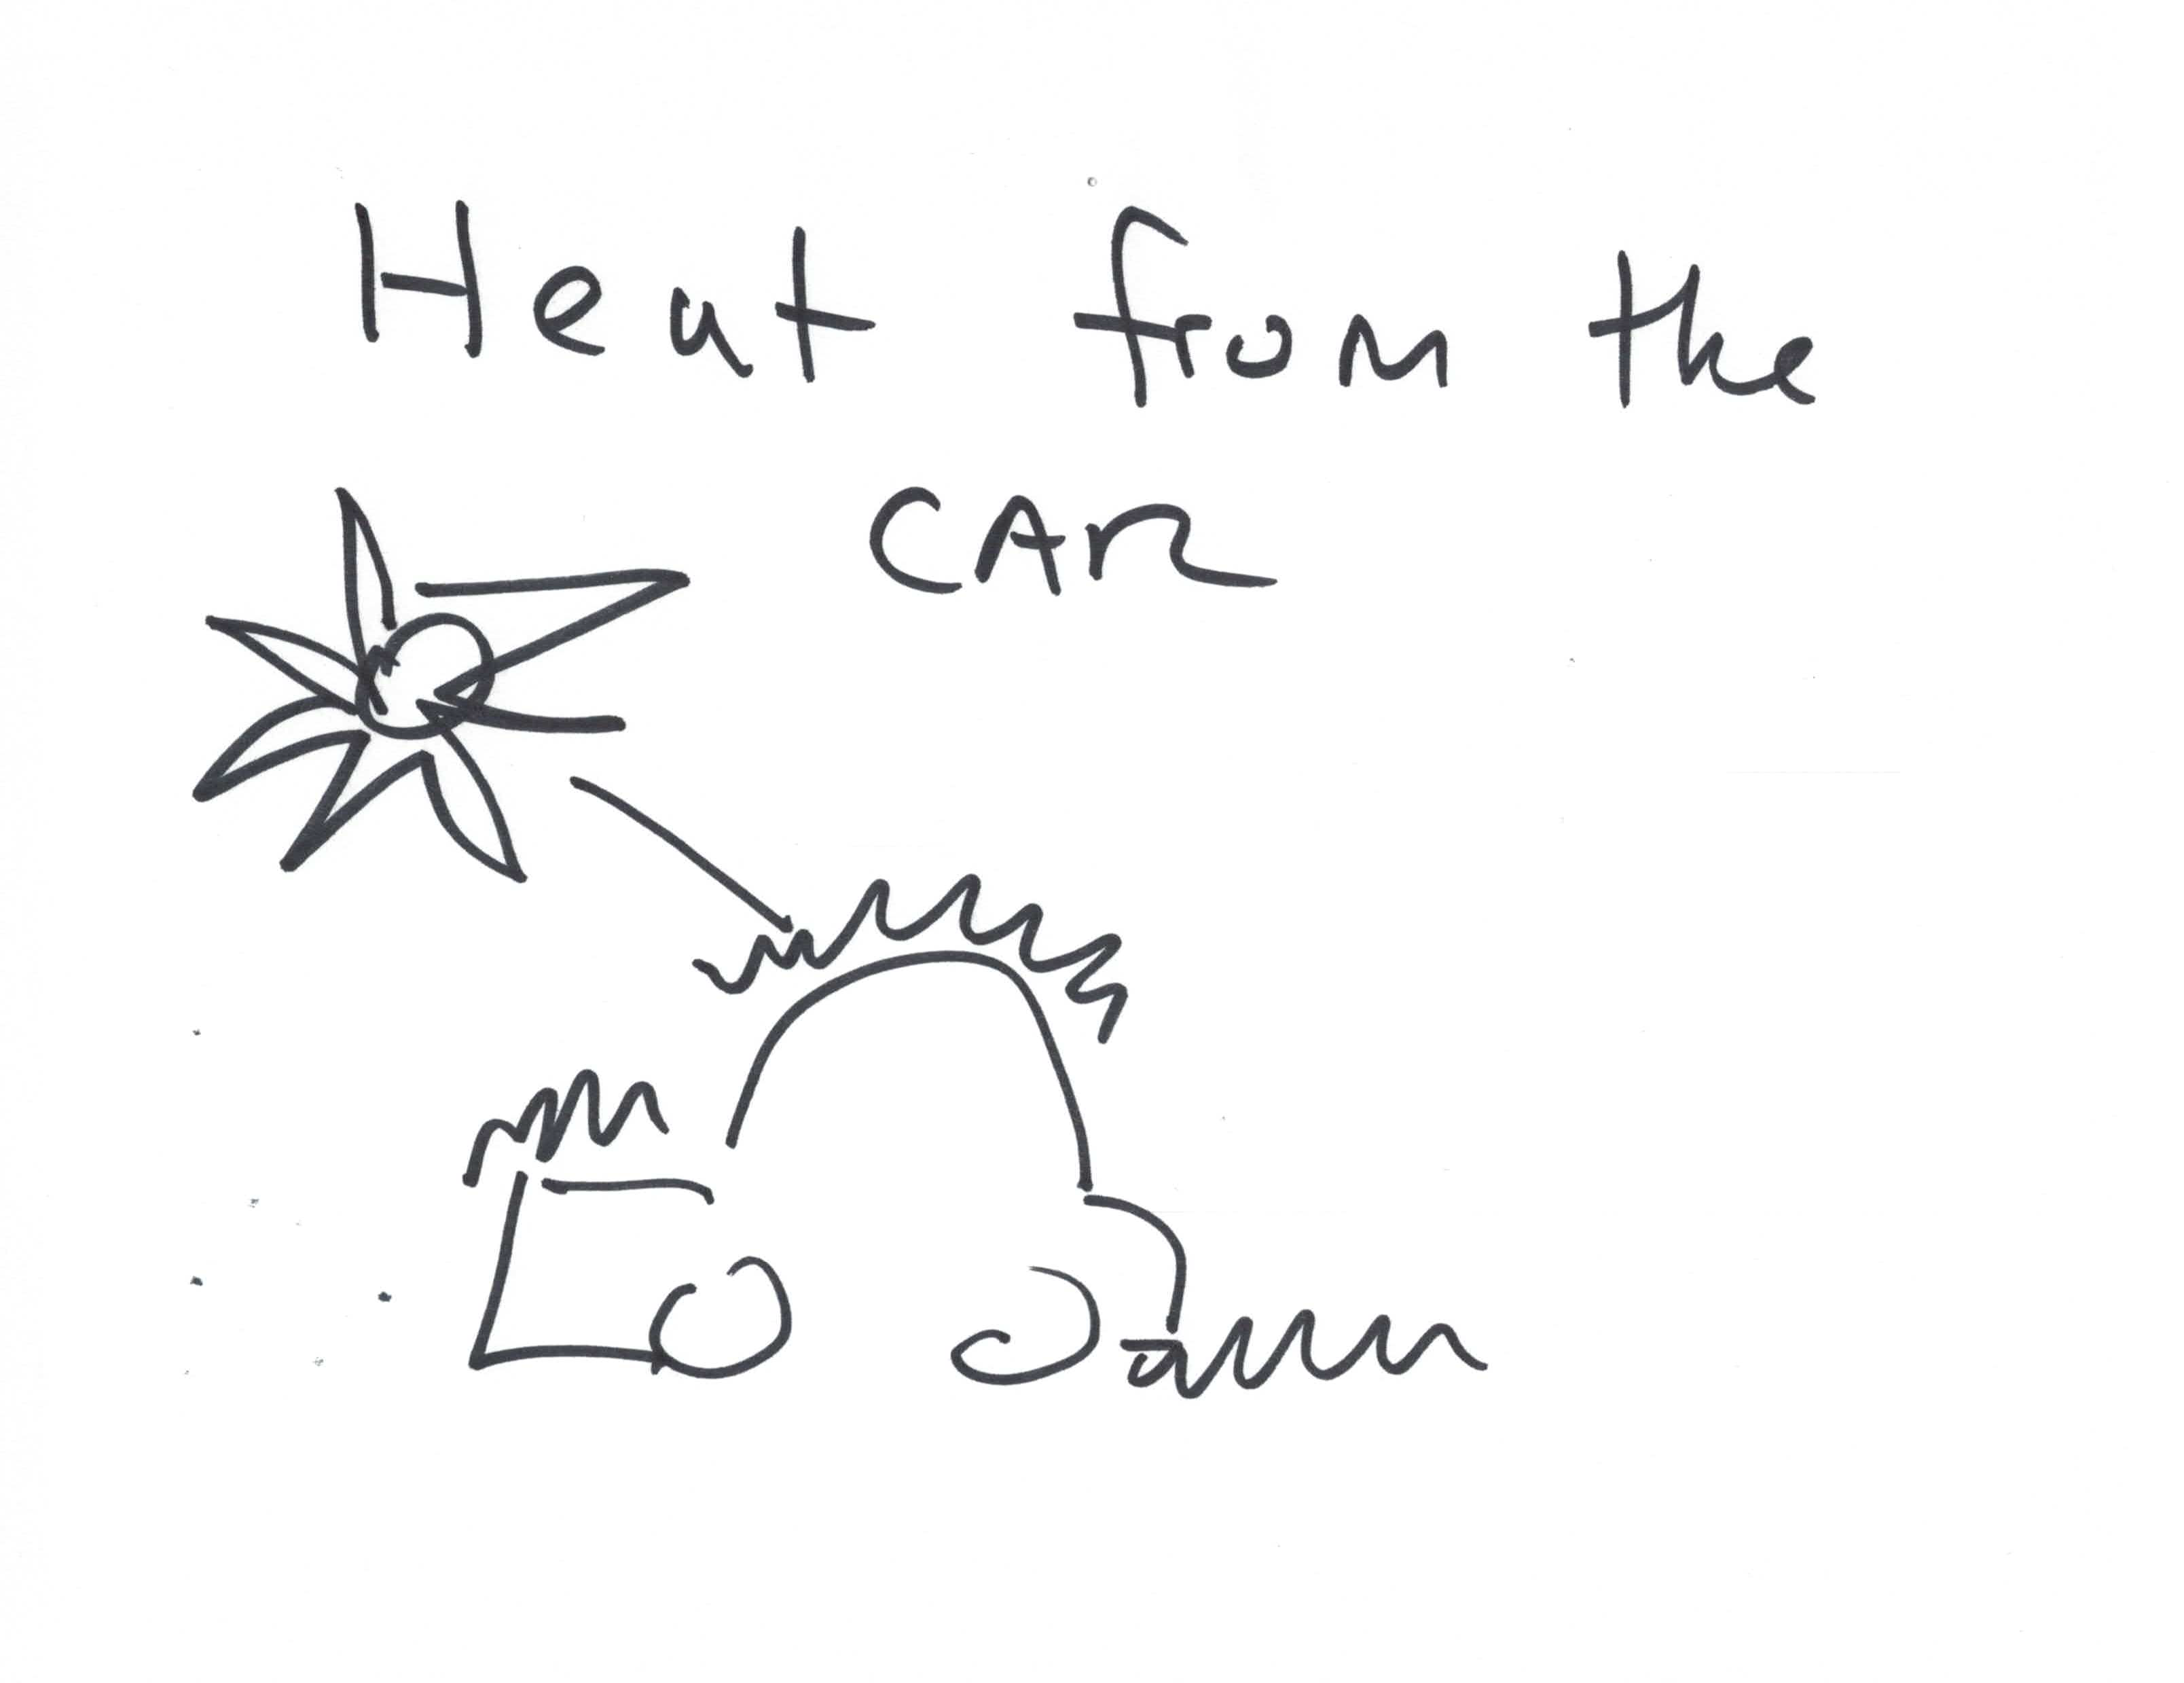 Heat from the
CAR